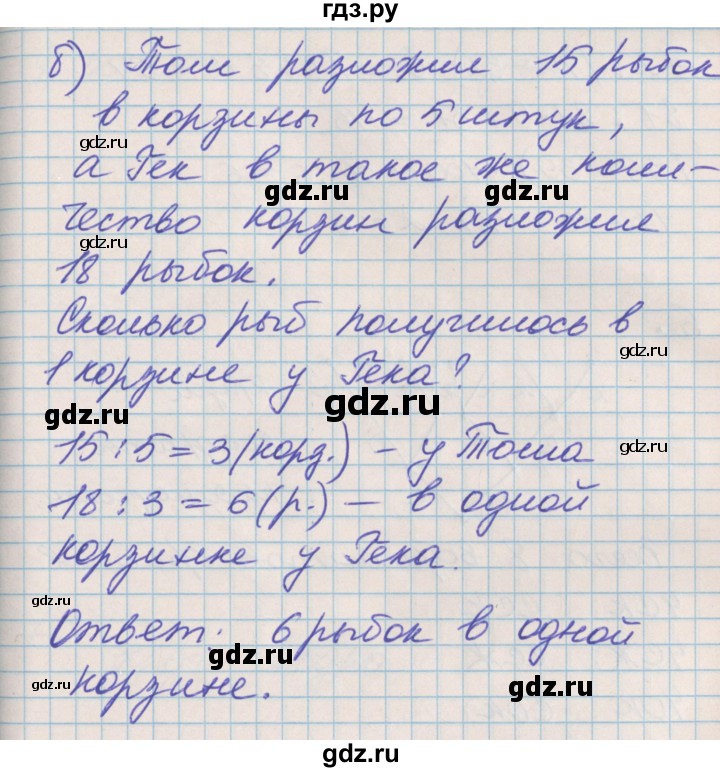 гдз.ру
б) Том разложил 15 рыбок
в корзины по 5 штук,
gdz.ru
а Гек в такое же коли-
gdz.ru gdz.ru
чество корзин разложил
gdz.ru
18 рыбок.
Сколько рыб получилось в
gdz.ru
1 корзине у Гека?
gdz.ru gdz.ru
15 : 5 = 3 (корз.) - у Тома
gdz.ru
18 : 3 = 6 (р.) – в одной
корзинке у Гека.
gdz.ru
Ответ: 6 рыбок в одной
gdz.ru gdz.ru
корзине.
gdz.ru gdz.ru
gdz.ru